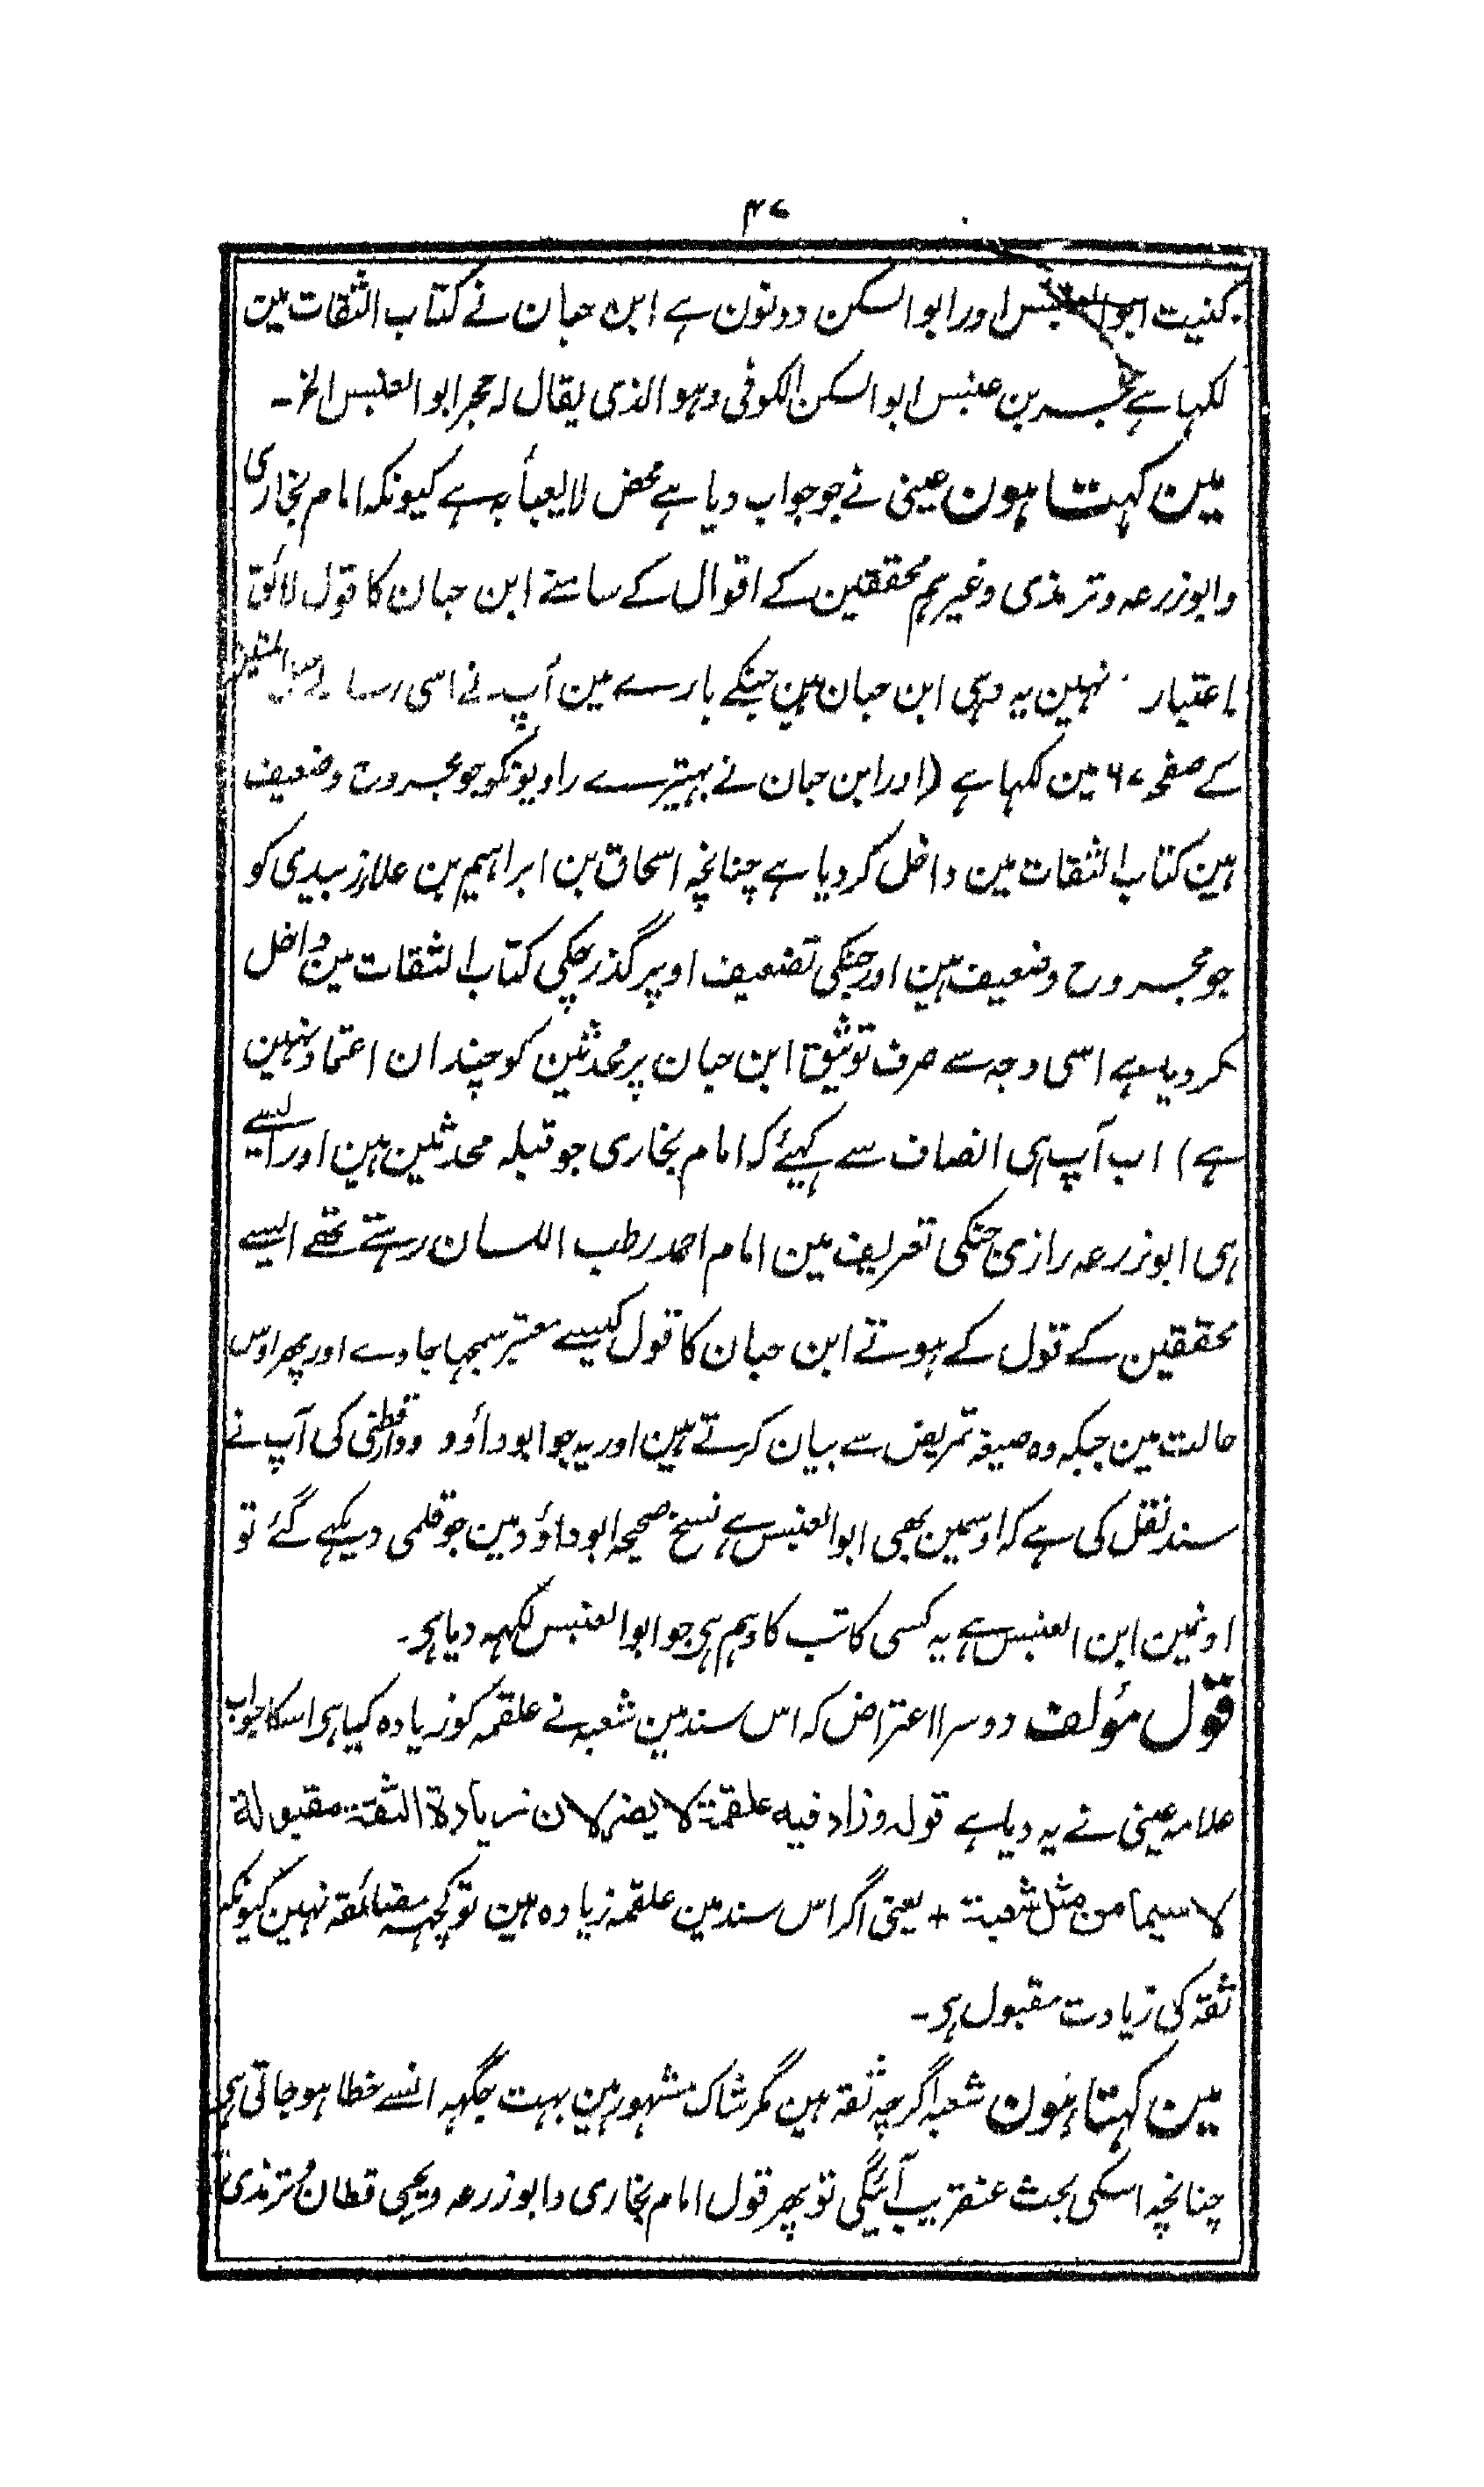 ۴۷
کنیت ابو العنبس اور ابو السکن دونون ہے ابن حبان نے کتاب الثقات مین
لکہا ہے حجر بن عنبس ابو السکن الکوفی وہو الذی یقال لہ حجر ابو العنبس الخ۔
مین کہتا ہون عینی نے جو جواب دیا ہے محض لا یعبأ بہ ہے کیونکہ امام بخاری
وابوزرعہ وترمذی وغیرہم محققین کے اقوال کے سامنے ابن حبان کا قول لائق
اعتبار نہین یہ وہی ابن حبان ہین جنکے بارے مین آپ نے اسی رسالے حبل المتین
کے صفحہ ۶۷ مین لکہا ہے (اور ابن حبان نے بہتیرے راویونکو جو مجروح وضعیف
ہین کتاب الثقات مین داخل کر دیا ہے چنانچہ اسحاق بن ابراہیم بن علاء زبیدی کو
جو مجروح وضعیف ہین اور جنکی تضعیف اوپر گذر چکی کتاب الثقات مین داخل
کر دیا ہے اسی وجہ سے صرف توثیق ابن حبان پر محدثین کو چندان اعتماد نہین
ہے) اب آپ ہی انصاف سے کہیئے کہ امام بخاری جو قبلہ محدثین ہین اور ایسے
ہی ابوزرعہ رازی جنکی تعریف مین امام احمد رطب اللسان رہتے تھے ایسے
محققین کے قول کے ہوتے ابن حبان کا قول کیسے معتبر سمجہا جاوے اور پھر اوس
حالت مین جبکہ وہ صیغہ تمریض سے بیان کرتے ہین اور یہ جو ابوداؤد ودارقطنی کی آپ نے
سند نقل کی ہے کہ اوسمین بھی ابو العنبس ہے نسخ صحیحہ ابوداؤد مین جو قلمی دیکہے گئے تو
اونمین ابن العنبس ہے یہ کسی کاتب کا وہم ہی جو ابو العنبس لکہہ دیا ہی۔
قول مؤلف دوسرا اعتراض کہ اس سند مین شعبہ نے علقمہ کو زیادہ کیا ہی اسکا جواب
علامہ عینی نے یہ دیا ہے قولہ وزاد فیہ علقمة لا یضر لان زیادة الثقة مقبولة
لا سیما من مثل شعبة + یعنی اگر اس سند مین علقمہ زیادہ ہین تو کچہہ مضائقہ نہین کیونکہ
ثقہ کی زیادت مقبول ہی۔
مین کہتا ہون شعبہ اگرچہ ثقہ ہین مگر شاک مشہور ہین بہت جگہہ انسے خطا ہو جاتی ہی
چنانچہ اسکی بحث عنقریب آئیگی تو پھر قول امام بخاری وابوزرعہ ویحیی قطان وترمذی